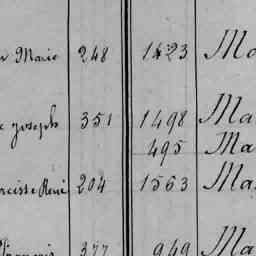 Marie 248 1423 Ma
Joseph 351 1498 Ma
495 Ma
René 204 1563 Ma
François 377 949 Ma